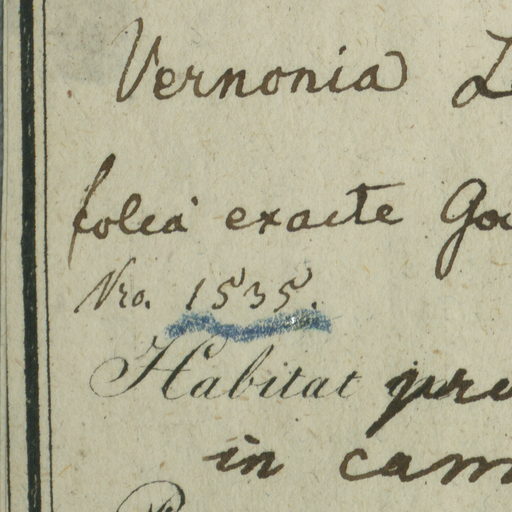 Vernonia L
folia exacte Go
Nro. 1535.
Habitat pre
in cam